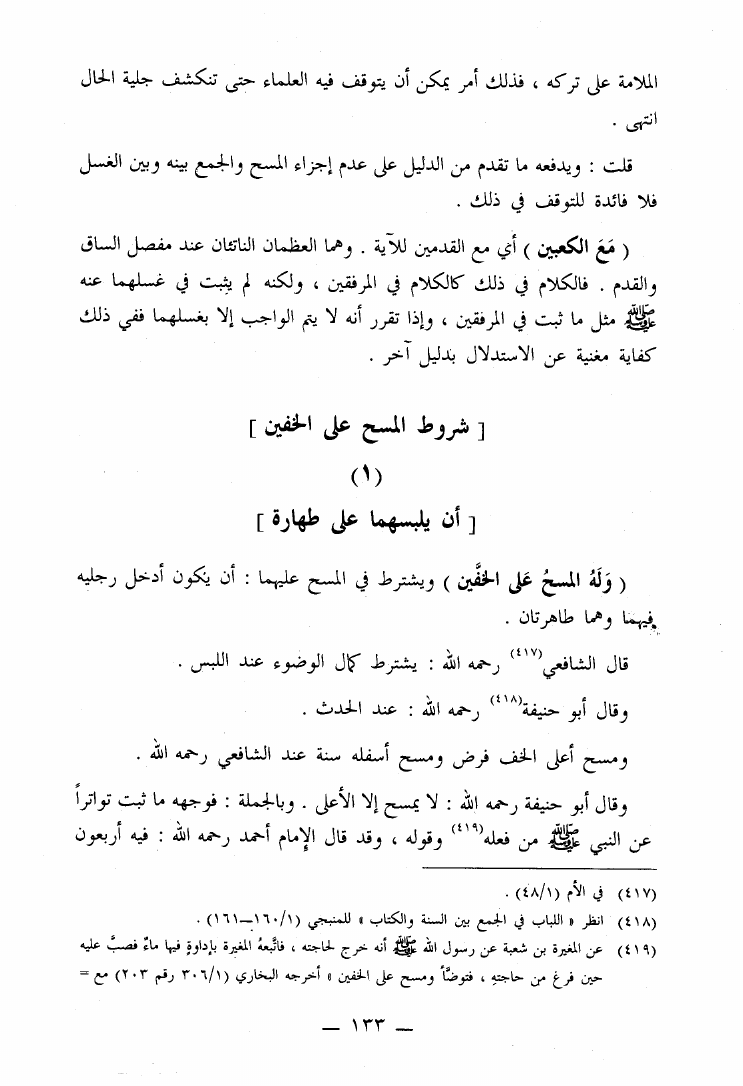 الملامة على تركه ، فذلك أمر يمكن أن يتوقف فيه العلماء حتى تنكشف جلية الحال
انتهى .
قلت : ويدفعه ما تقدم من الدليل على عدم إجزاء المسح والجمع بينه وبين الغسل
فلا فائدة للتوقف في ذلك .
( مَعَ الكعبين ) أي مع القدمين للآية . وهما العظمان الناتئان عند مفصل الساق
والقدم . فالكلام في ذلك كالكلام في المرفقين ، ولكنه لم يثبت في غسلهما عنه
ﷺ مثل ما ثبت في المرفقين ، وإذا تقرر أنه لا يتم الواجب إلا بغسلهما ففي ذلك
كفاية مغنية عن الاستدلال بدليل آخر .
[ شروط المسح على الخفين ]
(١)
[ أن يلبسهما على طهارة ]
( وَلَهُ المسحُ عَلى الخفَّين ) ويشترط في المسح عليهما : أن يكون أدخل رجليه
فيهما وهما طاهرتان .
قال الشافعي(٤١٧) رحمه الله : يشترط كمال الوضوء عند اللبس .
وقال أبو حنيفة(٤١٨) رحمه الله : عند الحدث .
ومسح أعلى الخف فرض ومسح أسفله سنة عند الشافعي رحمه الله .
وقال أبو حنيفة رحمه الله : لا يمسح إلا الأعلى . وبالجملة : فوجهه ما ثبت تواتراً
عن النبي ﷺ من فعله(٤١٩) وقوله ، وقد قال الإمام أحمد رحمه الله : فيه أربعون
(٤١٧) في الأم (٤٨/١) .
(٤١٨) انظر « اللباب في الجمع بين السنة والكتاب » للمنبجي (١٦٠/١–١٦١) .
(٤١٩) عن المغيرة بن شعبة عن رسول الله ﷺ أنه خرج لحاجته ، فاتَّبعهُ المغيرة بإداوةٍ فيها ماءٌ فصبَّ عليه
حين فرغ من حاجتهِ ، فتوضَّأ ومسح على الخفين » أخرجه البخاري (٣٠٦/١ رقم ٢٠٣) مع =
— ١٣٣ —